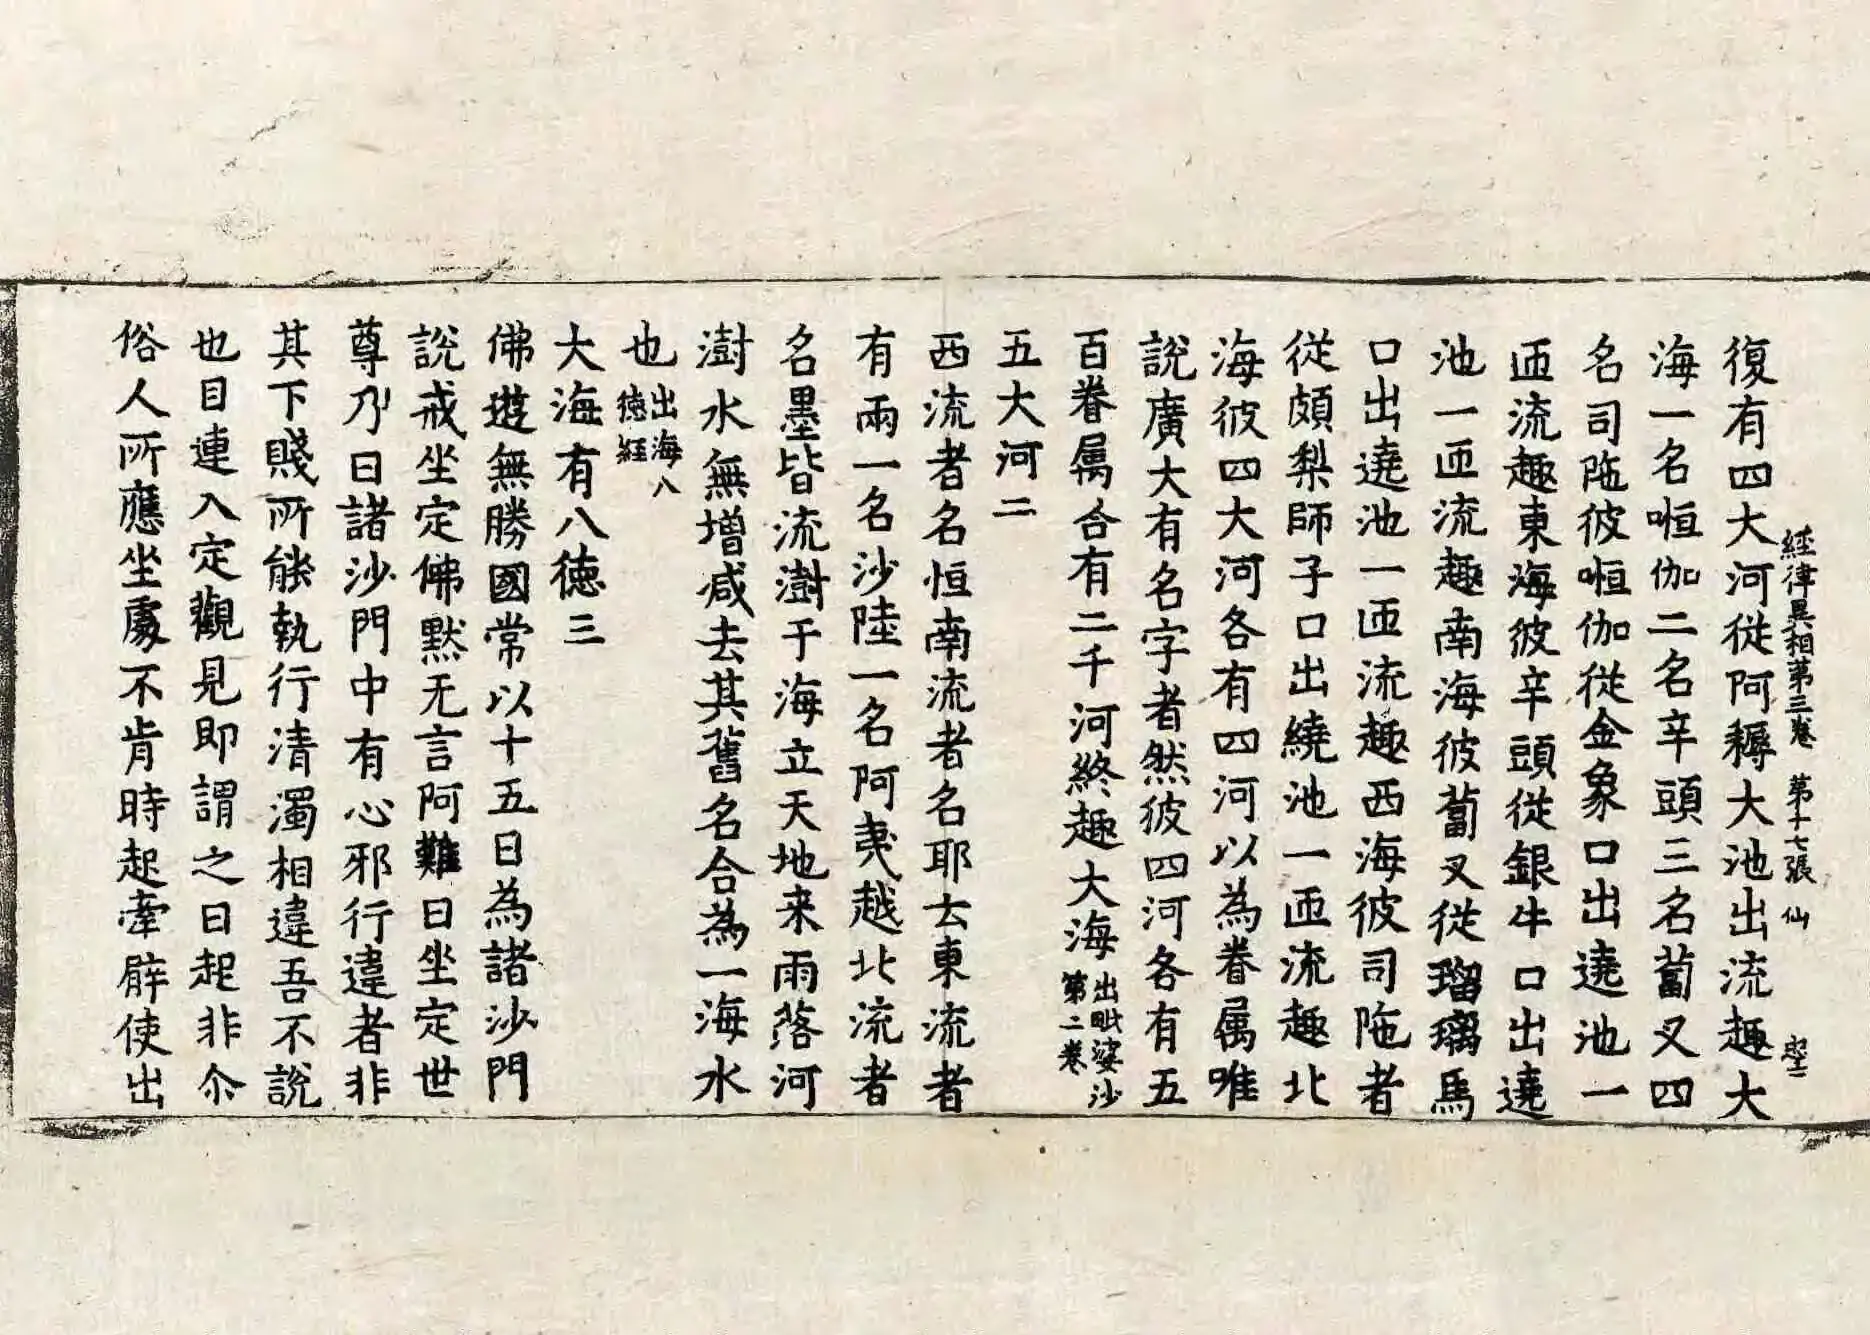 經律異相第三卷 第十七張 仙
復有四大河從阿耨大池出流趣大
海一名恒伽二名辛頭三名蔔叉四
名司陁彼恒伽從金象口出遶池一
匝流趣東海彼辛頭從銀牛口出遶
池一匝流趣南海彼蔔叉從瑠璃馬
口出遶池一匝流趣西海彼司陁者
從頗梨師子口出繞池一匝流趣北
海彼四大河各有四河以為眷属唯
說廣大有名字者然彼四河各有五
百眷属合有二千河終趣大海出毗婆沙第二卷
五大河二
西流者名恒南流者名耶去東流者
有兩一名沙陸一名阿夷越北流者
名墨皆流澍于海立天地来雨落河
澍水無增减去其舊名合為一海水
也出海八徳經
大海有八徳三
佛遊無勝國常以十五日為諸沙門
說戒坐定佛黙无言阿難曰坐定世
尊乃曰諸沙門中有心邪行違者非
其下賤所能執行清濁相違吾不說
也目連入定觀見即謂之曰起非尒
俗人所應坐處不肯時起牽臂使出